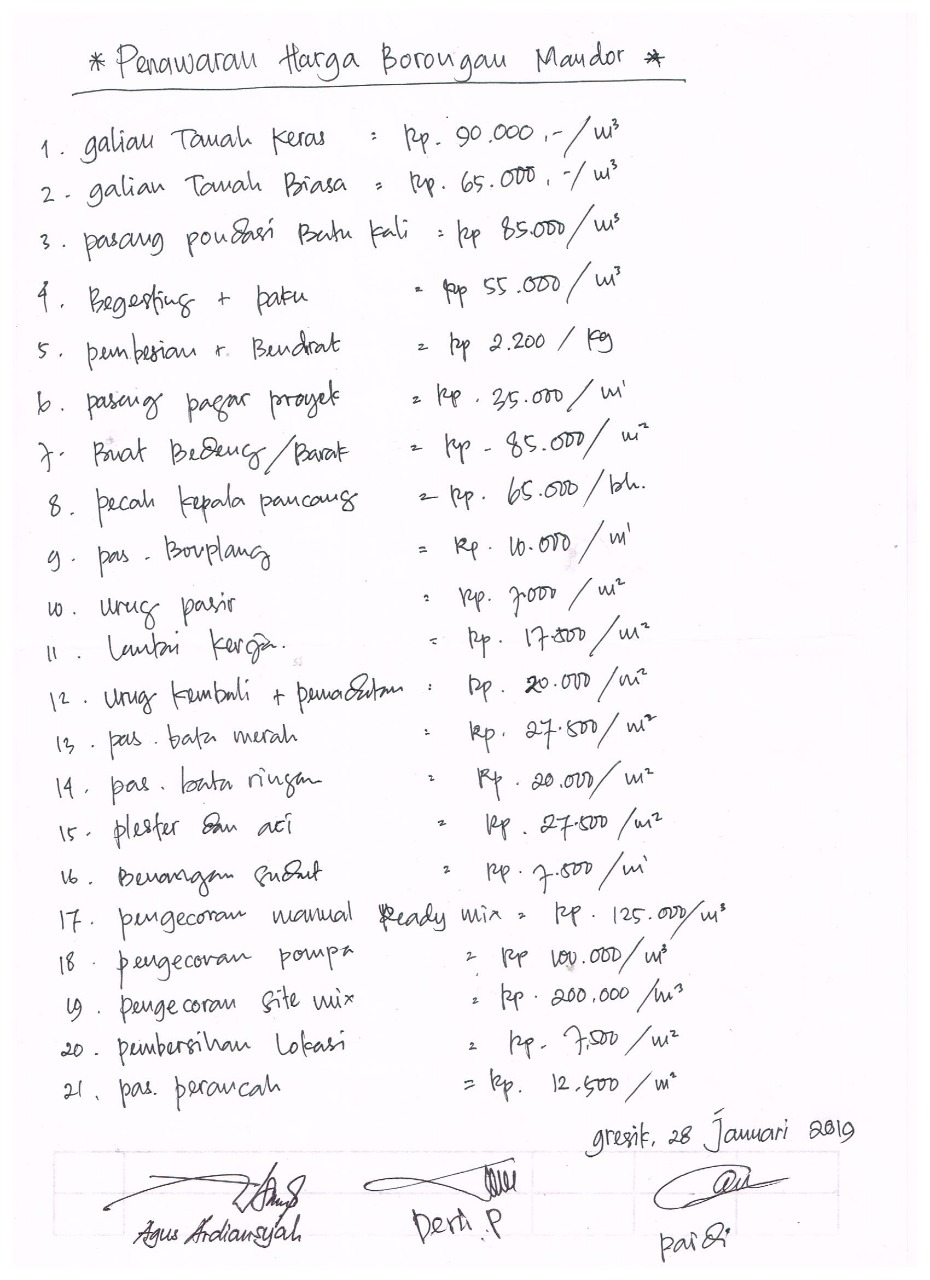 * Penawaran Harga Borongan Mandor *
1. galian Tanah Keras = Rp. 90.000,-/m³
2. galian Tanah Biasa = Rp. 65.000,-/m³
3. pasang pondasi Batu kali = Rp 85.000/m³
4. Begesting + paku = Rp 55.000/m³
5. pembesian + Bendrat = Rp 2.200 / Kg
6. pasang pagar proyek = Rp. 35.000/m'
7. Buat Bedeng/Barak = Rp. 85.000/m²
8. pecah kepala pancang = Rp. 65.000/bh.
9. pas. Bouplang = Rp. 10.000/m'
10. urug pasir = Rp. 7000/m²
11. Lantai kerja. = Rp. 17.500/m²
12. urug kembali + pemadatan = Rp. 20.000/m²
13. pas. bata merah = Rp. 27.500/m²
14. pas. bata ringan = Rp. 20.000/m²
15. plester dan aci = Rp. 27.500/m²
16. Benangan sudut = Rp. 7.500/m'
17. pengecoran manual Ready mix = Rp. 125.000/m³
18. pengecoran pompa = Rp 100.000/m³
19. pengecoran site mix = Rp. 200.000/m³
20. pembersihan Lokasi = Rp. 7.500/m²
21. pas. perancah = Rp. 12.500/m²
gresik, 28 Januari 2019
Agus Ardiansyah Derti .P paidi